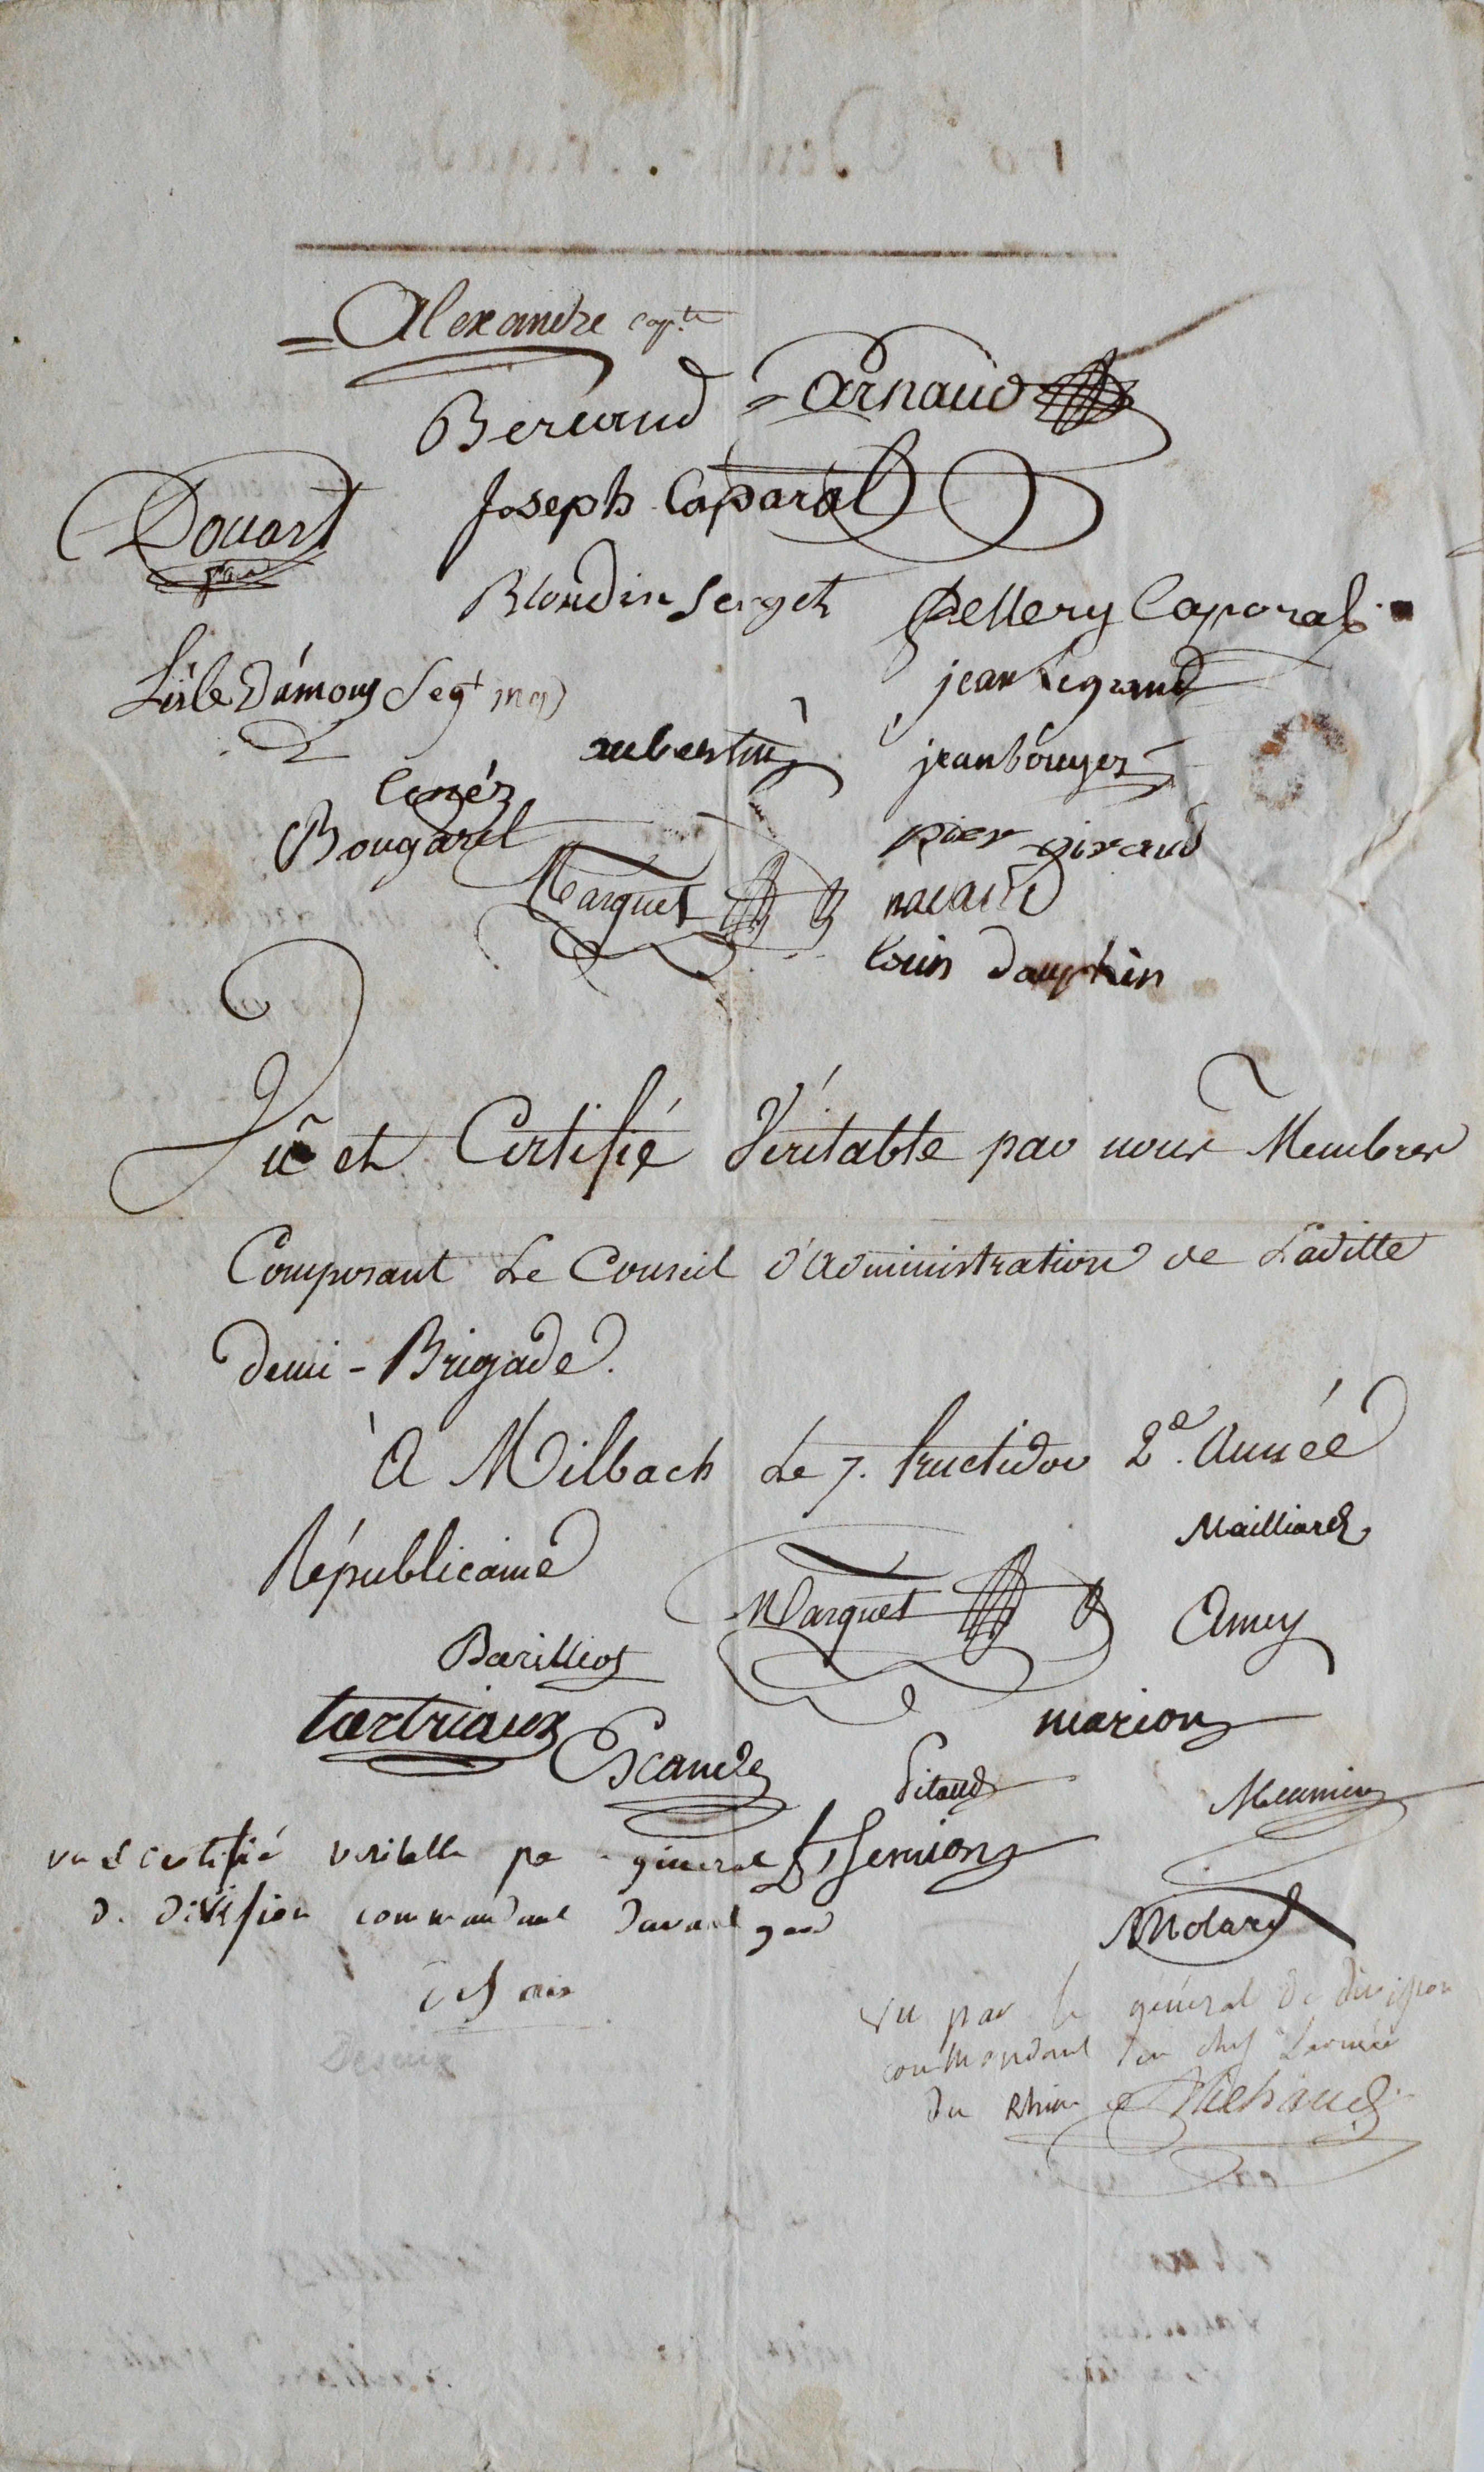 Alexandre capte
Beraud Arnaud
Joseph Caparal
Douart
Blondin Sergt Pellery Caporal
Lisle Damour Segt maj
jean Legrand
aubertin jean bouyer
Cenéz
Bougarel pier giraud
Marquet
louis dauphin
Vû et Certifié Véritable par nous Membres
Composant Le Conseil d'administration de Laditte
demi-Brigade.
A Milbach Le 7. fructidor 2e. année
Républicaine
Mailliard
Marquet Amey
Barilliot
tartriaux marion
Escande
Pitaud Meunier
vu & certifié veritable par général
de division commandant davant gard
Molard
Desaix
Vu par le général de division
commandant en chef Larmée
du Rhin Michaud
Desaix